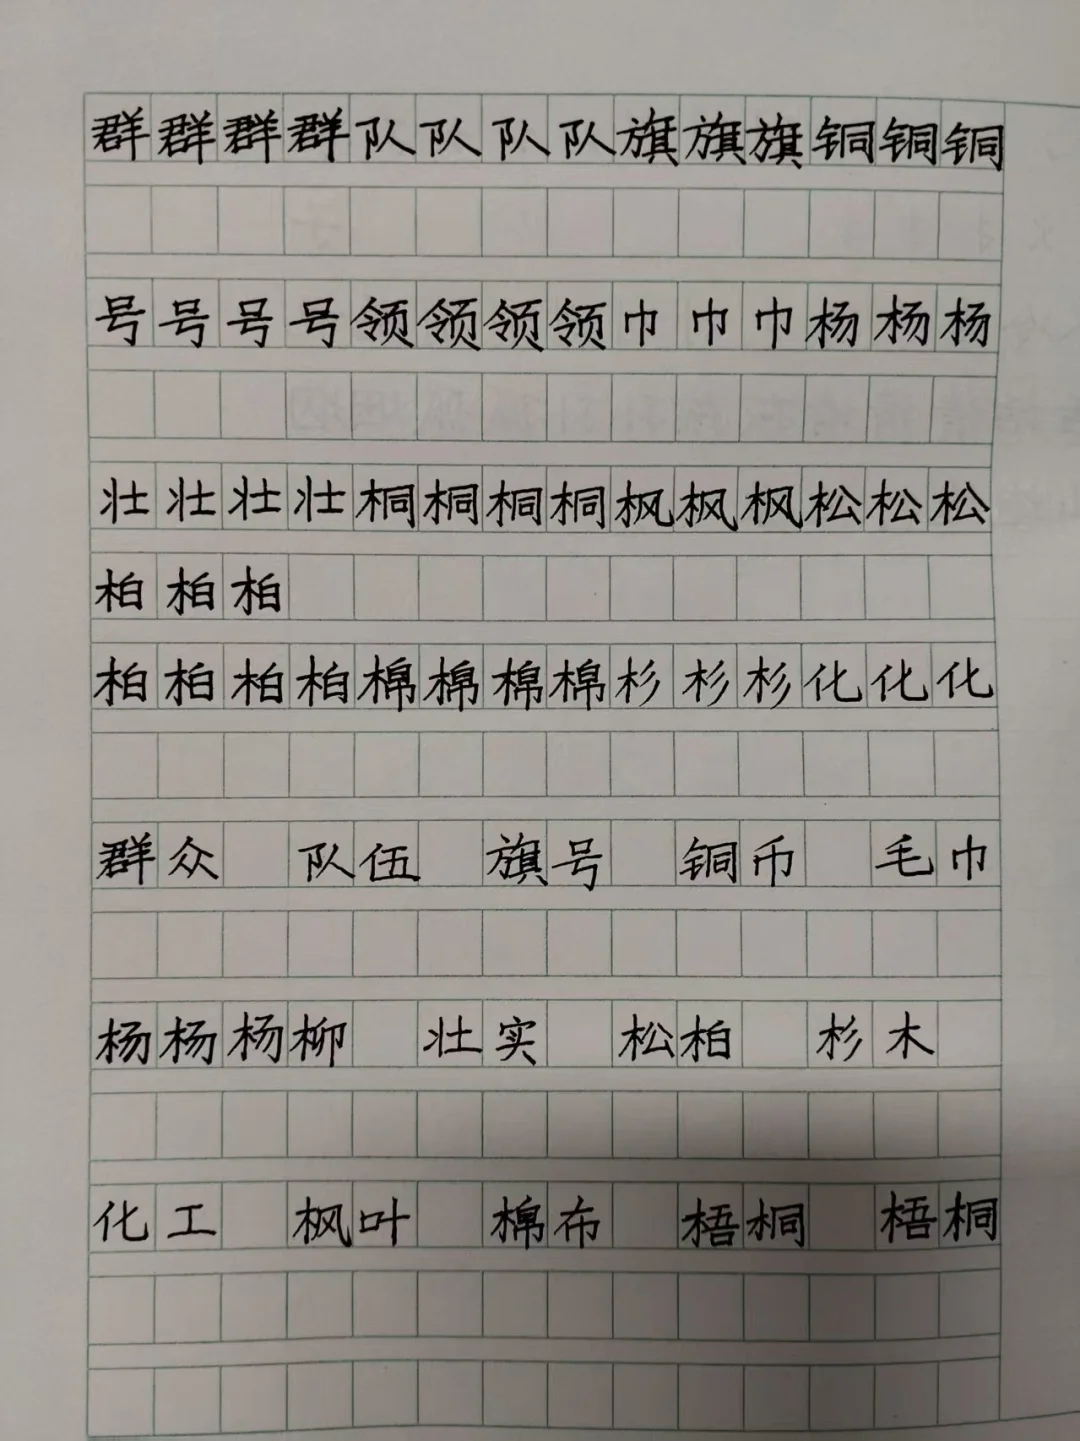 群群群群队队队队旗旗旗铜铜铜
号号号号领领领领巾巾巾杨杨杨
壮壮壮壮桐桐桐桐枫枫枫松松松
柏柏柏
柏柏柏柏棉棉棉棉杉杉杉化化化
群众 队伍 旗号 铜币 毛巾
杨杨杨柳 壮实 松柏 杉木
化工 枫叶 棉布 梧桐 梧桐